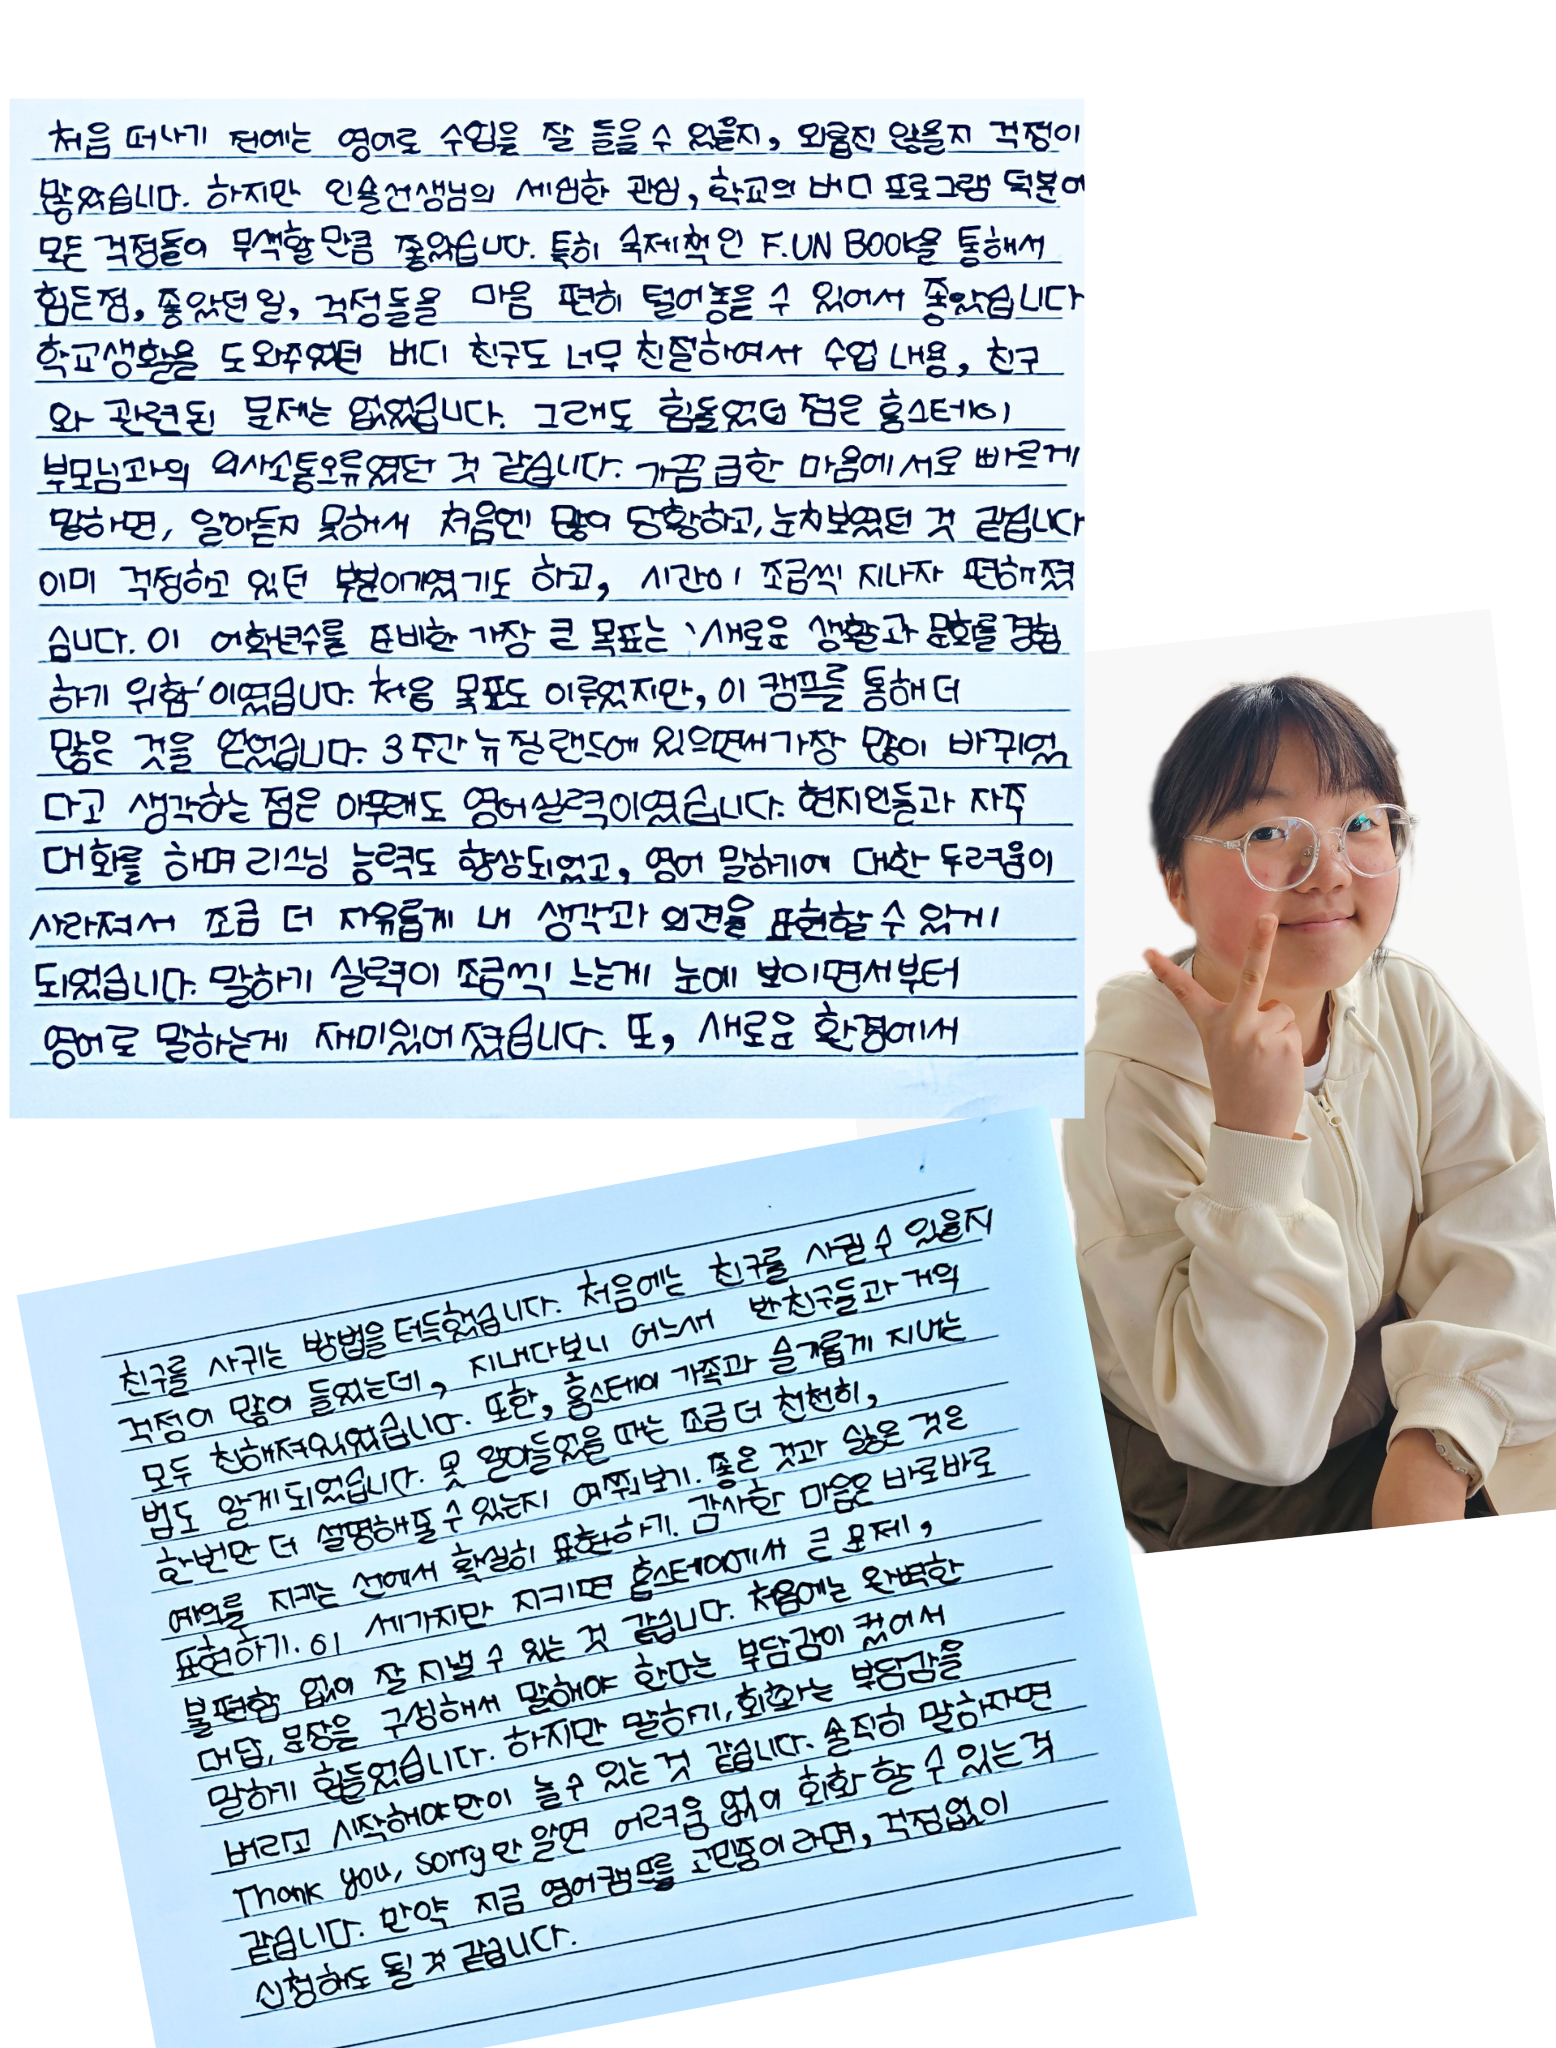 처음 떠나기 전에는 영어로 수업을 잘 들을 수 있을지, 외롭진 않을지 걱정이
많았습니다. 하지만 인솔선생님의 세심한 관심, 학교의 버디 프로그램 덕분에
모든 걱정들이 무색할 만큼 좋았습니다. 특히 숙제책인 F.UN BOOK을 통해서
힘든점, 좋았던 일, 걱정들을 마음 편히 털어놓을 수 있어서 좋았습니다
학교생활을 도와주었던 버디 친구도 너무 친절하여서 수업 내용, 친구
와 관련된 문제는 없었습니다. 그래도 힘들었던 점은 홈스테이
부모님과의 의사소통오류였던 것 같습니다. 가끔 급한 마음에 서로 빠르게
말하면, 알아듣지 못해서 처음엔 많이 당황하고, 눈치보였던 것 같습니다
이미 걱정하고 있던 부분이기였기도 하고, 시간이 조금씩 지나자 편해졌
습니다. 이 어학연수를 준비한 가장 큰 목표는 '새로운 생활과 문화를 경험
하기 위함' 이였습니다. 처음 목표도 이루었지만, 이 캠프를 통해 더
많은 것을 얻었습니다. 3주간 뉴질랜드에 있으면서 가장 많이 바뀌었
다고 생각하는 점은 아무래도 영어실력이였습니다. 현지인들과 자주
대화를 하며 리스닝 능력도 향상되었고, 영어 말하기에 대한 두려움이
사라져서 조금 더 자유롭게 내 생각과 의견을 표현할 수 있게
되었습니다. 말하기 실력이 조금씩 느는게 눈에 보이면서부터
영어로 말하는게 재미있어졌습니다. 또, 새로운 환경에서
친구를 사귀는 방법을 터득했습니다. 처음에는 친구를 사귈 수 있을지
걱정이 많이 들었는데, 지내다보니 어느새 반친구들과 거의
모두 친해져있었습니다. 또한, 홈스테이 가족과 슬기롭게 지내는
법도 알게되었습니다. 못 알아들었을 때는 조금 더 천천히,
한번만 더 설명해줄 수 있는지 여쭤보기. 좋은 것과 싫은 것은
예의를 지키는 선에서 확실히 표현하기. 감사한 마음은 바로바로
표현하기. 이 세가지만 지키면 홈스테이에서 큰 문제,
불편함 없이 잘 지낼 수 있는 것 같습니다. 처음에는 완벽한
대답, 문장을 구성해서 말해야 한다는 부담감이 컸어서
말하기 힘들었습니다. 하지만 말하기, 회화는 부담감을
버리고 시작해야만이 늘 수 있는 것 같습니다. 솔직히 말하자면
Thank you, sorry만 알면 어려움 없이 회화 할 수 있는것
같습니다. 만약 지금 영어캠프를 고민중이라면, 걱정없이
신청해도 될 것 같습니다.